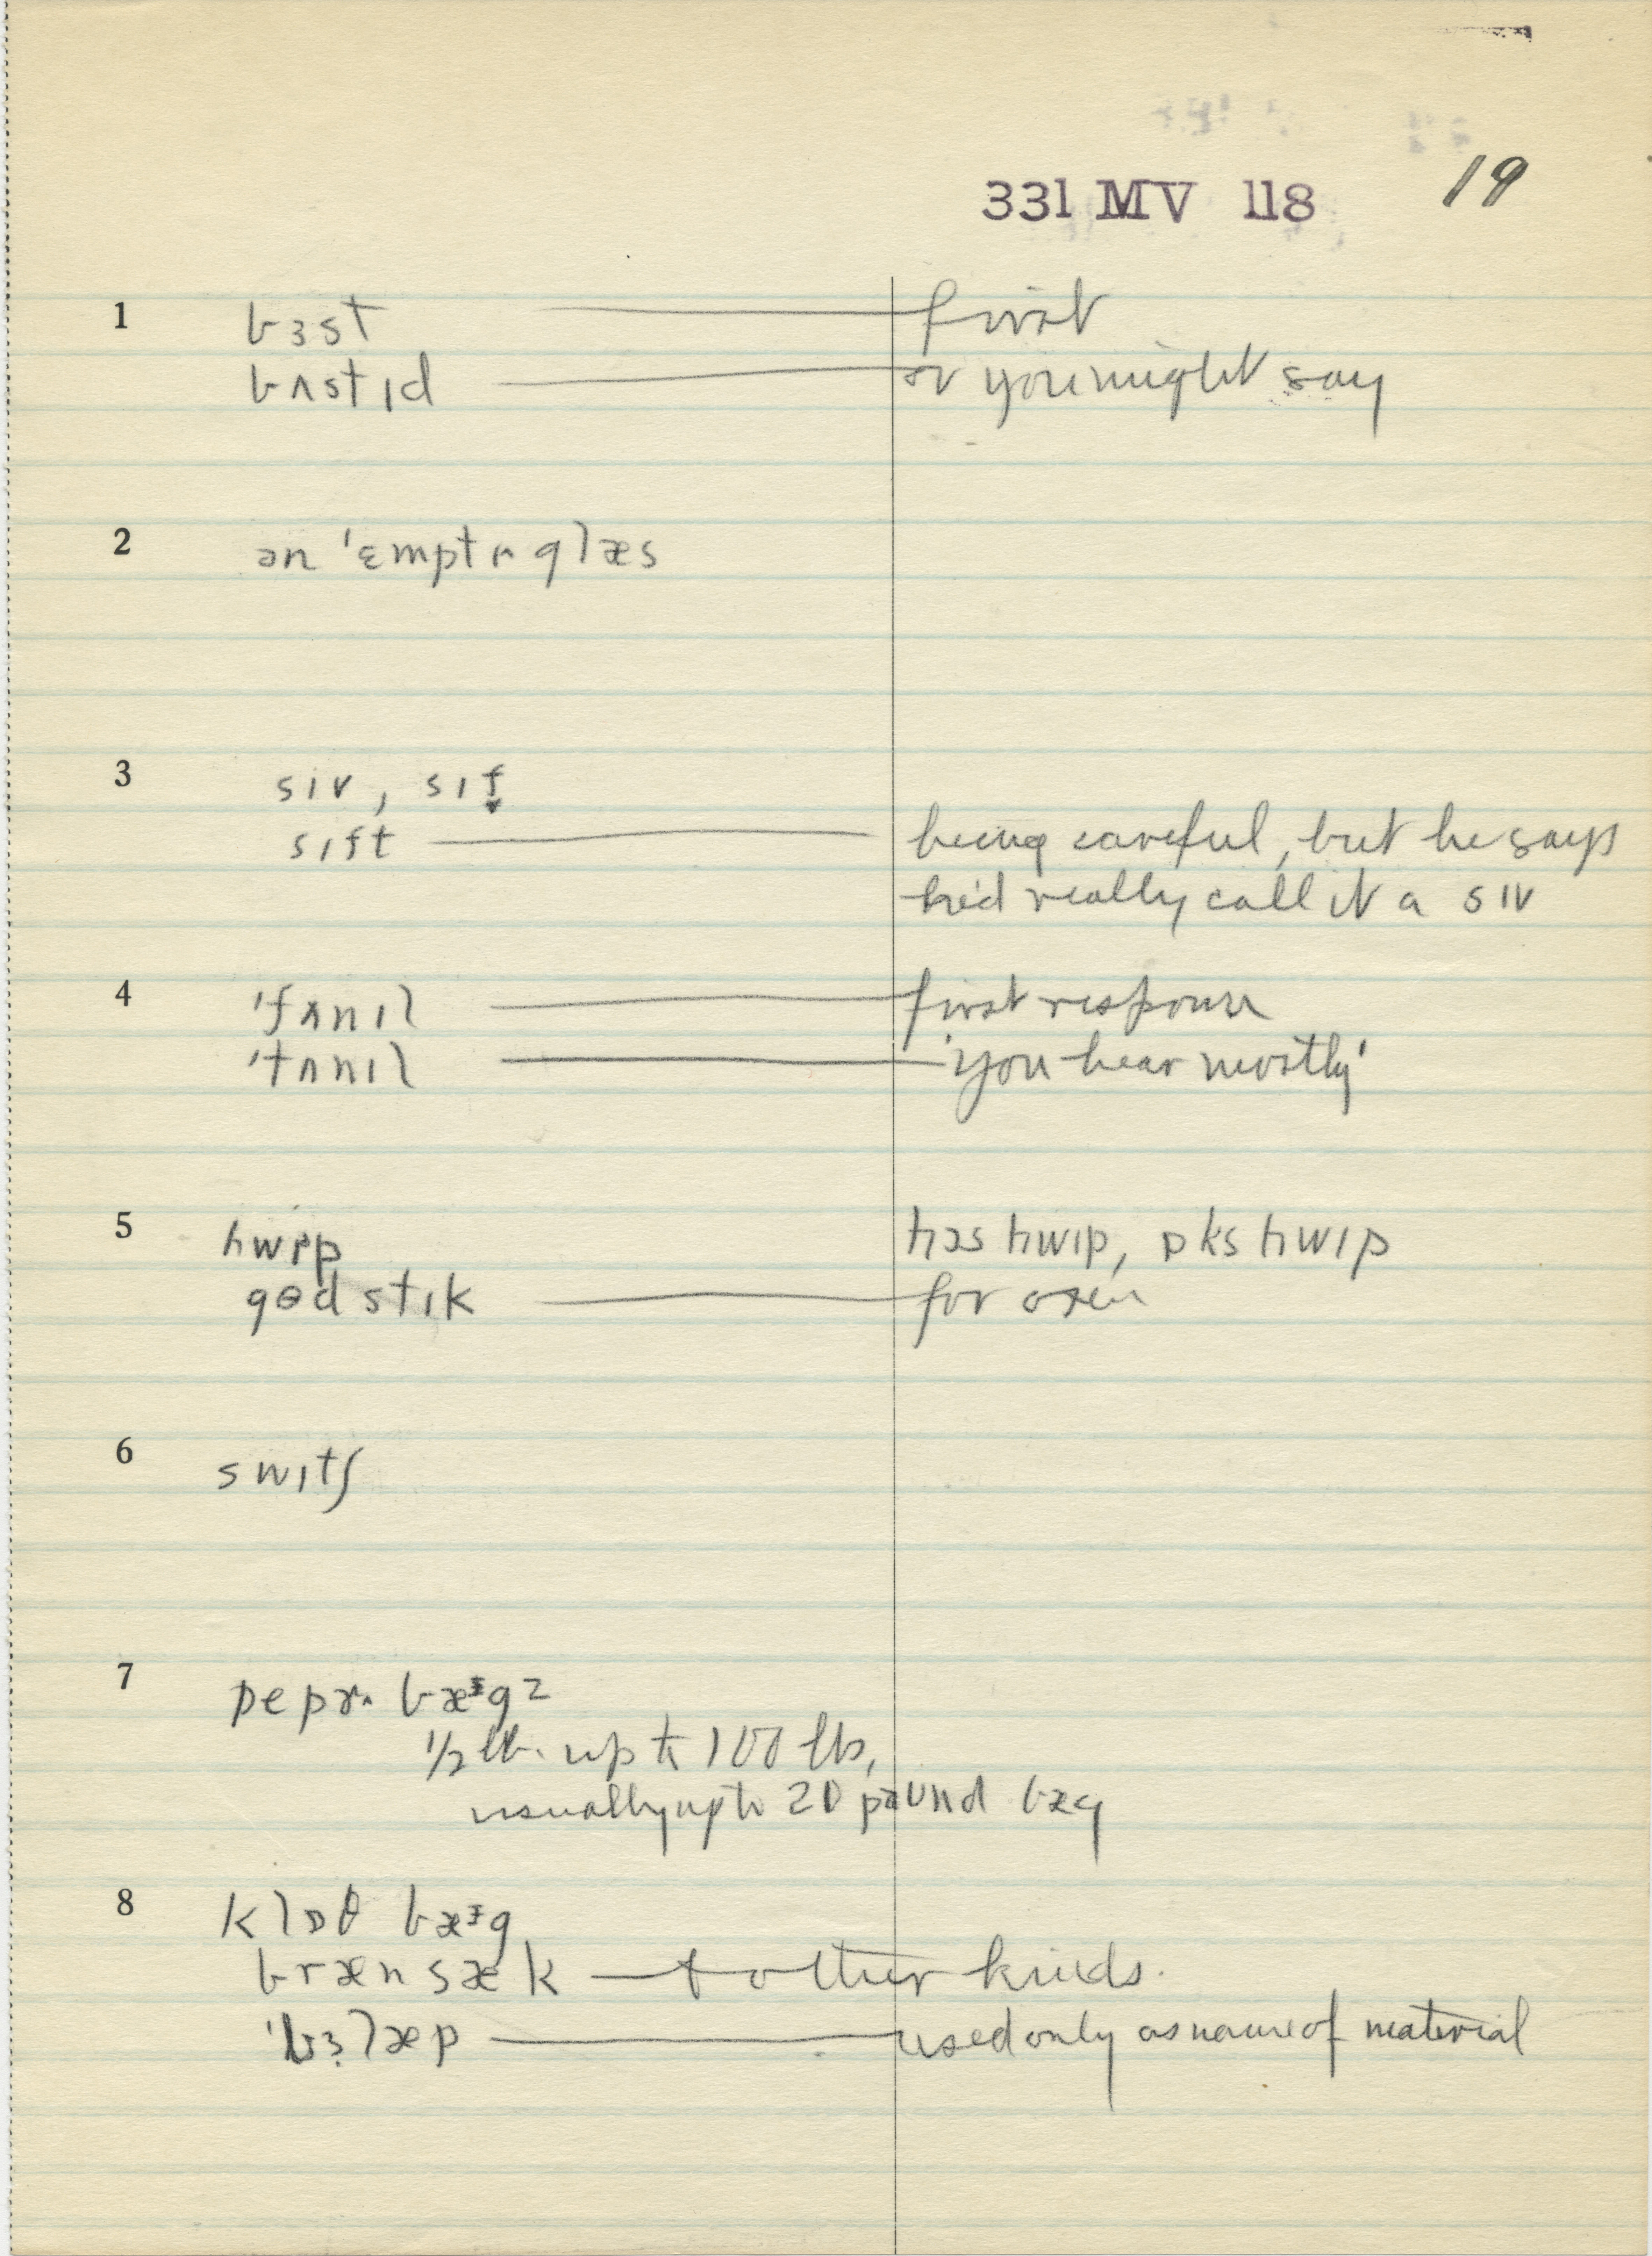 331 MV 118 19
1 bɜst — first
bʌstɪd — or you might say
2 ən 'ɛmptɪ^ glæs
3 sɪv, sɪf̬
sɪft — being careful, but he says
he'd really call it a sɪv
4 'fʌnɪl — first response
'tʌnɪl — 'you hear mostly'
5 hwɪp hɔs hwɪp, ɒks hwɪp
gɵd stɪk — for oxen
6 swɪtʃ
7 pepɚ bæᵌgz
1/2 lb. up to 100 lbs,
usually up to 20 paund bæg
8 klɒθ bæᵌg
bræn sæk — + other kinds.
'bɜlæp — used only as name of material